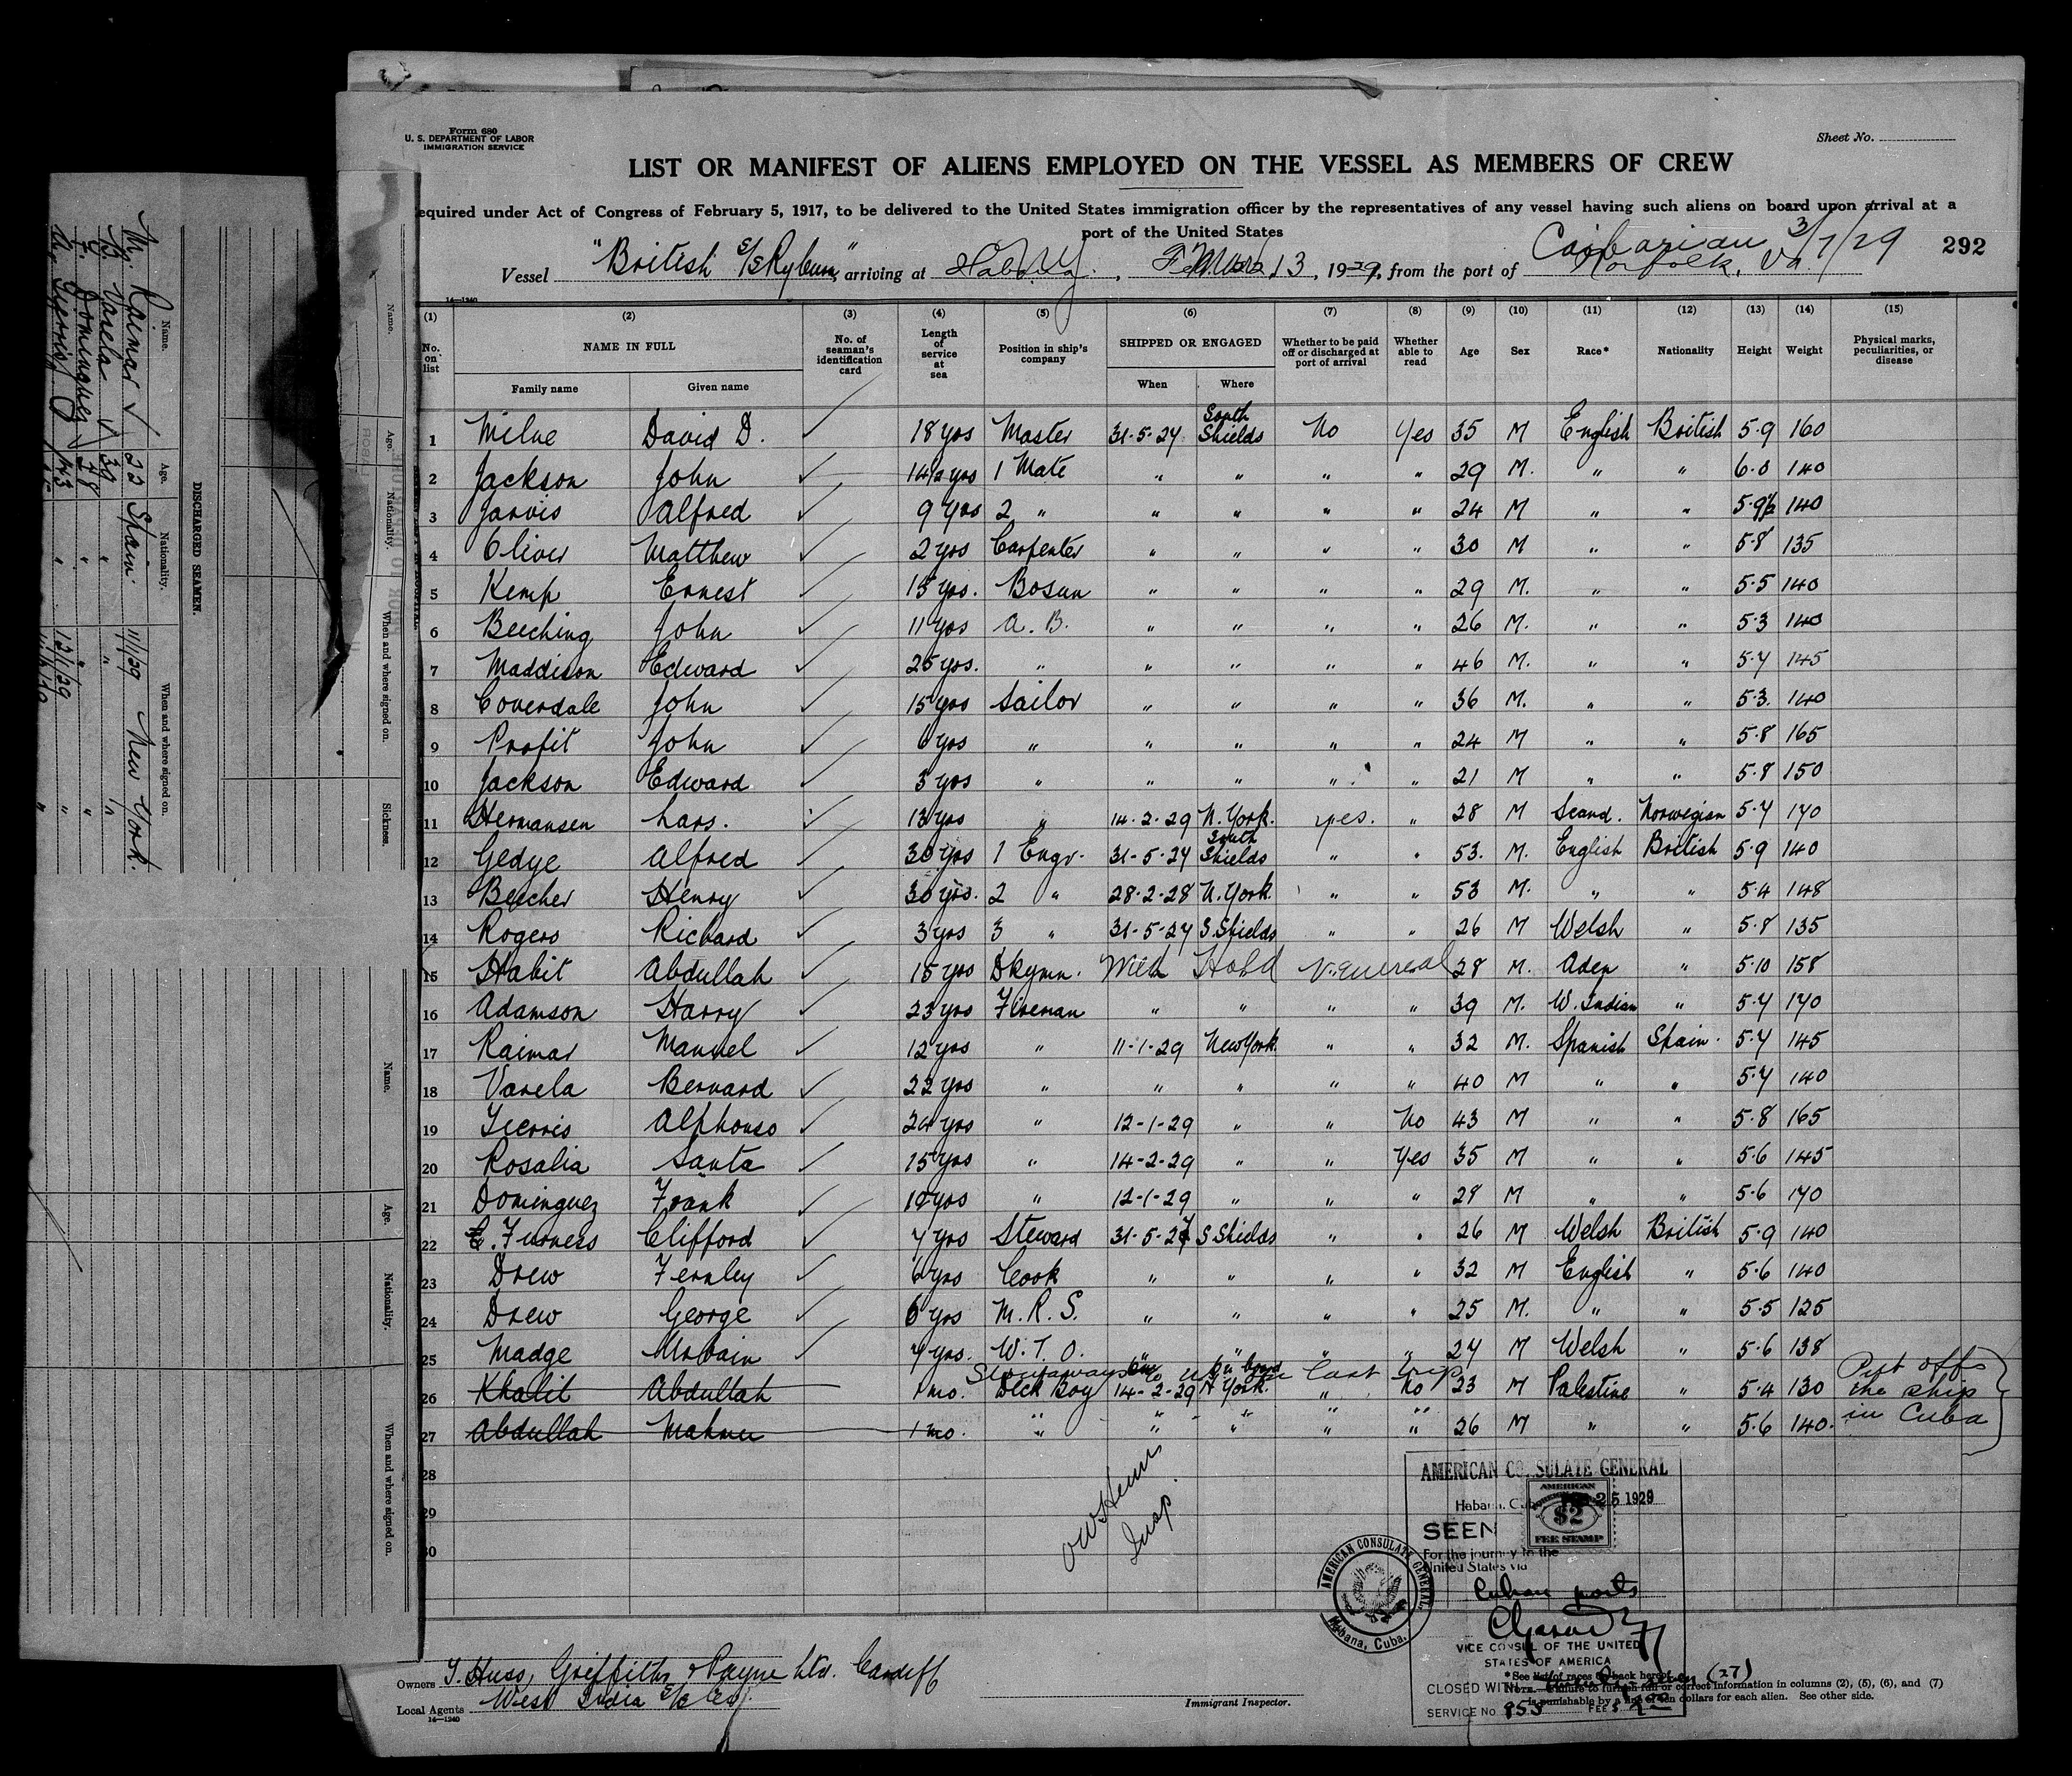 Form 680
U. S. DEPARTMENT OF LABOR
IMMIGRATION SERVICE
Sheet No.
LIST OR MANIFEST OF ALIENS EMPLOYED ON THE VESSEL AS MEMBERS OF CREW
equired under Act of Congress of February 5, 1917, to be delivered to the United States immigration officer by the representatives of any vessel having such aliens on board upon arrival at a
port of the United States
Caibarien 3/7/29
292
Vessel "British S/S Ryburn" arriving at , 13, 1929, from the port of Norfolk, Va.
14—1240
(1) (2) (3) (4) (5) (6) (7) (8) (9) (10) (11) (12) (13) (14) (15)
No. on list
NAME IN FULL
Family name
Given name
No. of seaman's identification card
Length of service at sea
Position in ship's company
SHIPPED OR ENGAGED
When
Where
Whether to be paid off or discharged at port of arrival
Whether able to read
Age
Sex
Race*
Nationality
Height
Weight
Physical marks, peculiarities, or disease
1 Milne David D. ✓ 18 yrs Master 31-5-27 South Shields No Yes 35 M English British 5-9 160
2 Jackson John ✓ 14½ yrs 1 Mate " " " " 29 M. " " 6-0 140
3 Jarvis Alfred ✓ 9 yrs 2 " " " " " 24 M " " 5-9½ 140
4 Oliver Matthew ✓ 2 yrs Carpenter " " " " 30 M " " 5-8 135
5 Kemp Ernest ✓ 15 yrs. Bosun " " " " 29 M. " " 5-5 140
6 Beeching John ✓ 11 yrs A. B. " " " " 26 M. " " 5-3 140
7 Maddison Edward ✓ 25 yrs. " " " " " 46 M. " " 5-7 145
8 Coverdale John ✓ 15 yrs Sailor " " " " 36 M. " " 5-3. 140
9 Profit John ✓ 6 yrs " " " " " 24 M " " 5-8 165
10 Jackson Edward ✓ 3 yrs " " " " " 21 M " " 5-8 150
11 Hermansen Lars. ✓ 13 yrs " 14-2-29 N. York. yes. " 28 M Scand. Norwegian 5-7 170
12 Gedye Alfred ✓ 30 yrs 1 Engr. 31-5-27 South Shields " " 53. M. English British 5-9 140
13 Beecher Henry ✓ 30 yrs. 2 " 28-2-28 N. York. " " 53 M. " " 5-4 148
14 Rogers Richard ✓ 3 yrs 3 " 31-5-27 S. Shields " " 26 M Welsh " 5-8 135
15 Habit Abdullah ✓ 15 yrs Dkymn. Med Hold Venereal 28 M. Aden " 5-10 158
16 Adamson Harry ✓ 23 yrs Fireman " " " " 39 M. W. Indian " 5-7 170
17 Raimar Manuel ✓ 12 yrs " 11-1-29 New York. " " 32 M. Spanish Spain. 5-7 145
18 Varela Bernard ✓ 22 yrs " " " " " 40 M " " 5-7 140
19 Alphonso ✓ 24 yrs " 12-1-29 " " No 43 M " " 5-8 165
20 Rosalia Santa ✓ 15 yrs " 14-2-29 " " Yes 35 M " " 5-6 145
21 Dominguez Frank ✓ 10 yrs " 12-1-29 " " " 28 M " " 5-6 170
22 Furness Clifford ✓ 7 yrs Steward 31-5-27 S Shields " " 26 M Welsh British 5-9 140
23 Drew Fernley ✓ 6 yrs Cook " " " " 32 M English " 5-6 140
24 Drew George ✓ 6 yrs M. R. S. " " " " 25 M. " " 5-5 125
25 Madge ✓ 7 yrs. W. T. O. " " " " 24 M Welsh " 5-6 138
Stowaways on last trip
26 Khalil Abdullah 1 mo. Deck Boy 14-2-29 N York. " No 23 M Palestine " 5-4 130 Put offs the ship in Cuba
27 Abdullah 1 mo. " " " " " 26 M " " 5-6 140.
28
29
30
Insp.
AMERICAN CONSULATE GENERAL
Habana, Cuba 25 1929
AMERICAN
$2
FEE STAMP
SEEN
For the journey to the
United States via
Cuban ports
AMERICAN CONSULATE GENERAL
Habana, Cuba.
VICE CONSUL OF THE UNITED
STATES OF AMERICA
CLOSED WITH (27)
SERVICE No. 855 FEE $
Owners Griffiths & Payne Ltd. Cardiff
Local Agents West India S/S Co.
14—1240
Immigrant Inspector.
*See list of races on back hereof.
NOTE.—Failure to furnish full or correct information in columns (2), (5), (6), and (7)
is punishable by a fine of ten dollars for each alien. See other side.
DISCHARGED SEAMEN.
Name. Age. Nationality. When and where signed on.
M. Raimar ✓ 22 Spain. 11/1/29 New York.
B. Varela ✓ 39 " " "
F. Dominguez ✓ 28 " " "
43 " 12/1/29 "
Name. Age. Nationality. When and where signed on. Sickness.
Name. Age. Nationality. When and where signed on.